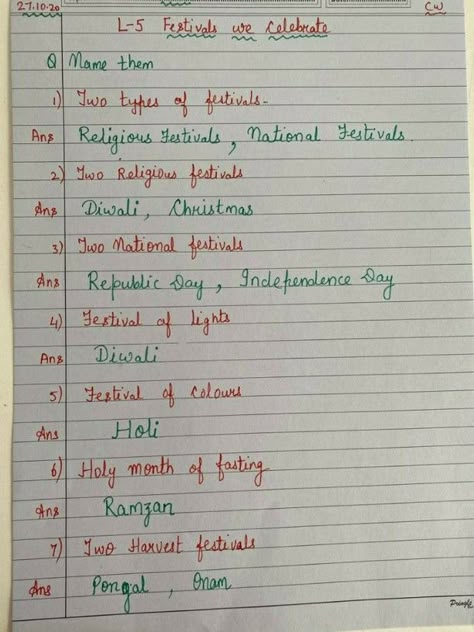 27.10.20 CW
L-5 Festivals we Celebrate
Q Name them
1) Two types of festivals-
Ans Religious Festivals, National Festivals.
2) Two Religious festivals
Ans Diwali, Christmas
3) Two National festivals
Ans Republic Day, Independence Day
4) Festival of lights
Ans Diwali
5) Festival of colours
Ans Holi
6) Holy month of fasting
Ans Ramzan
7) Two Harvest festivals
Ans Pongal, Onam